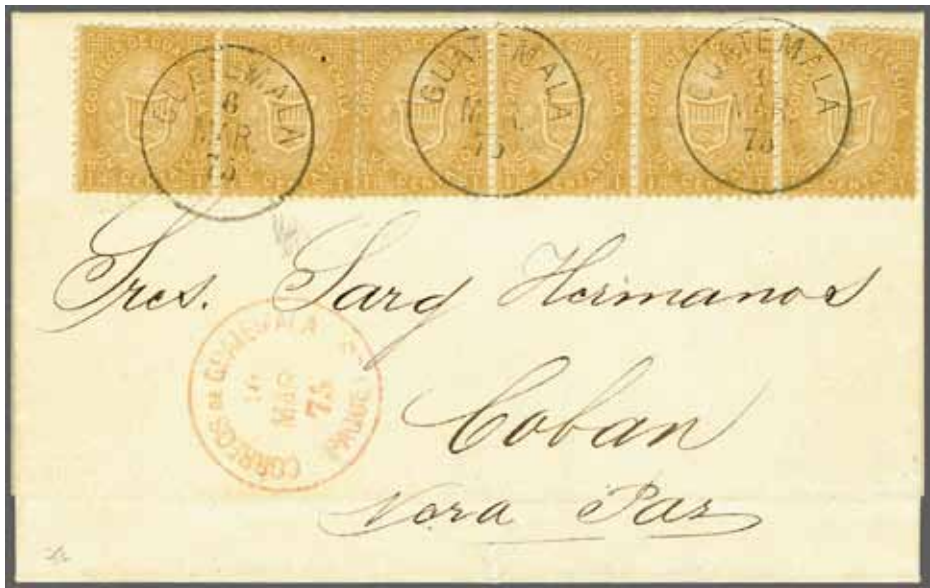 CORREOS DE GUATEMALA
CENTAVO
GUATEMALA
6
MAR.
75
GUATEMALA
MAR.
75
GUATEMALA
MAR.
75
Sres. Sarg Hermanos
CORREOS DE GUATEMALA
MAR
75
Coban
Vera Paz